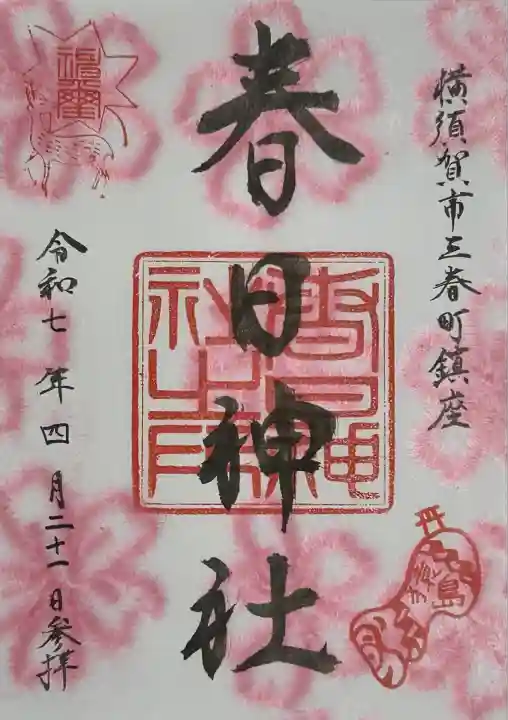 横須賀市三春町鎮座
春日神社
春日神社之印
令和七年四月二十一日参拝
猿島